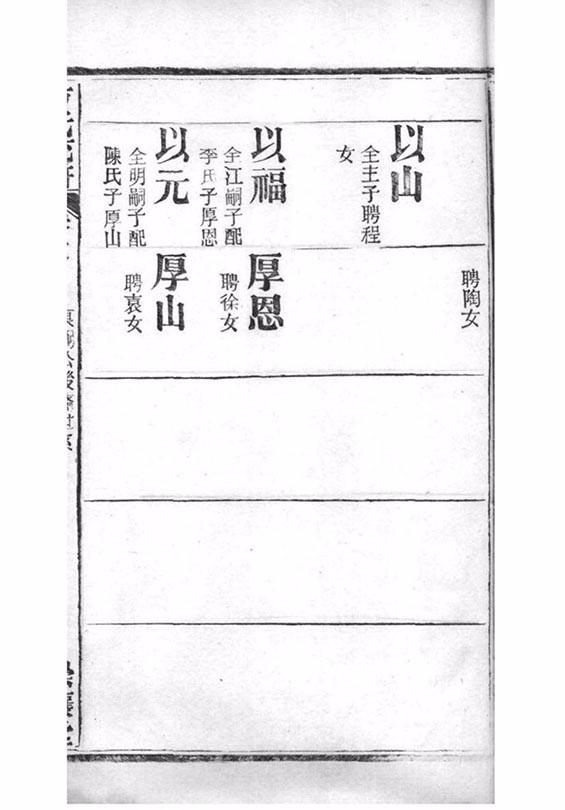 以山
全主子聘程
女
以福
全江嗣子配
李氏子厚恩
以元
全明嗣子配
陳氏子厚山
聘陶女
厚恩
聘徐女
厚山
聘袁女